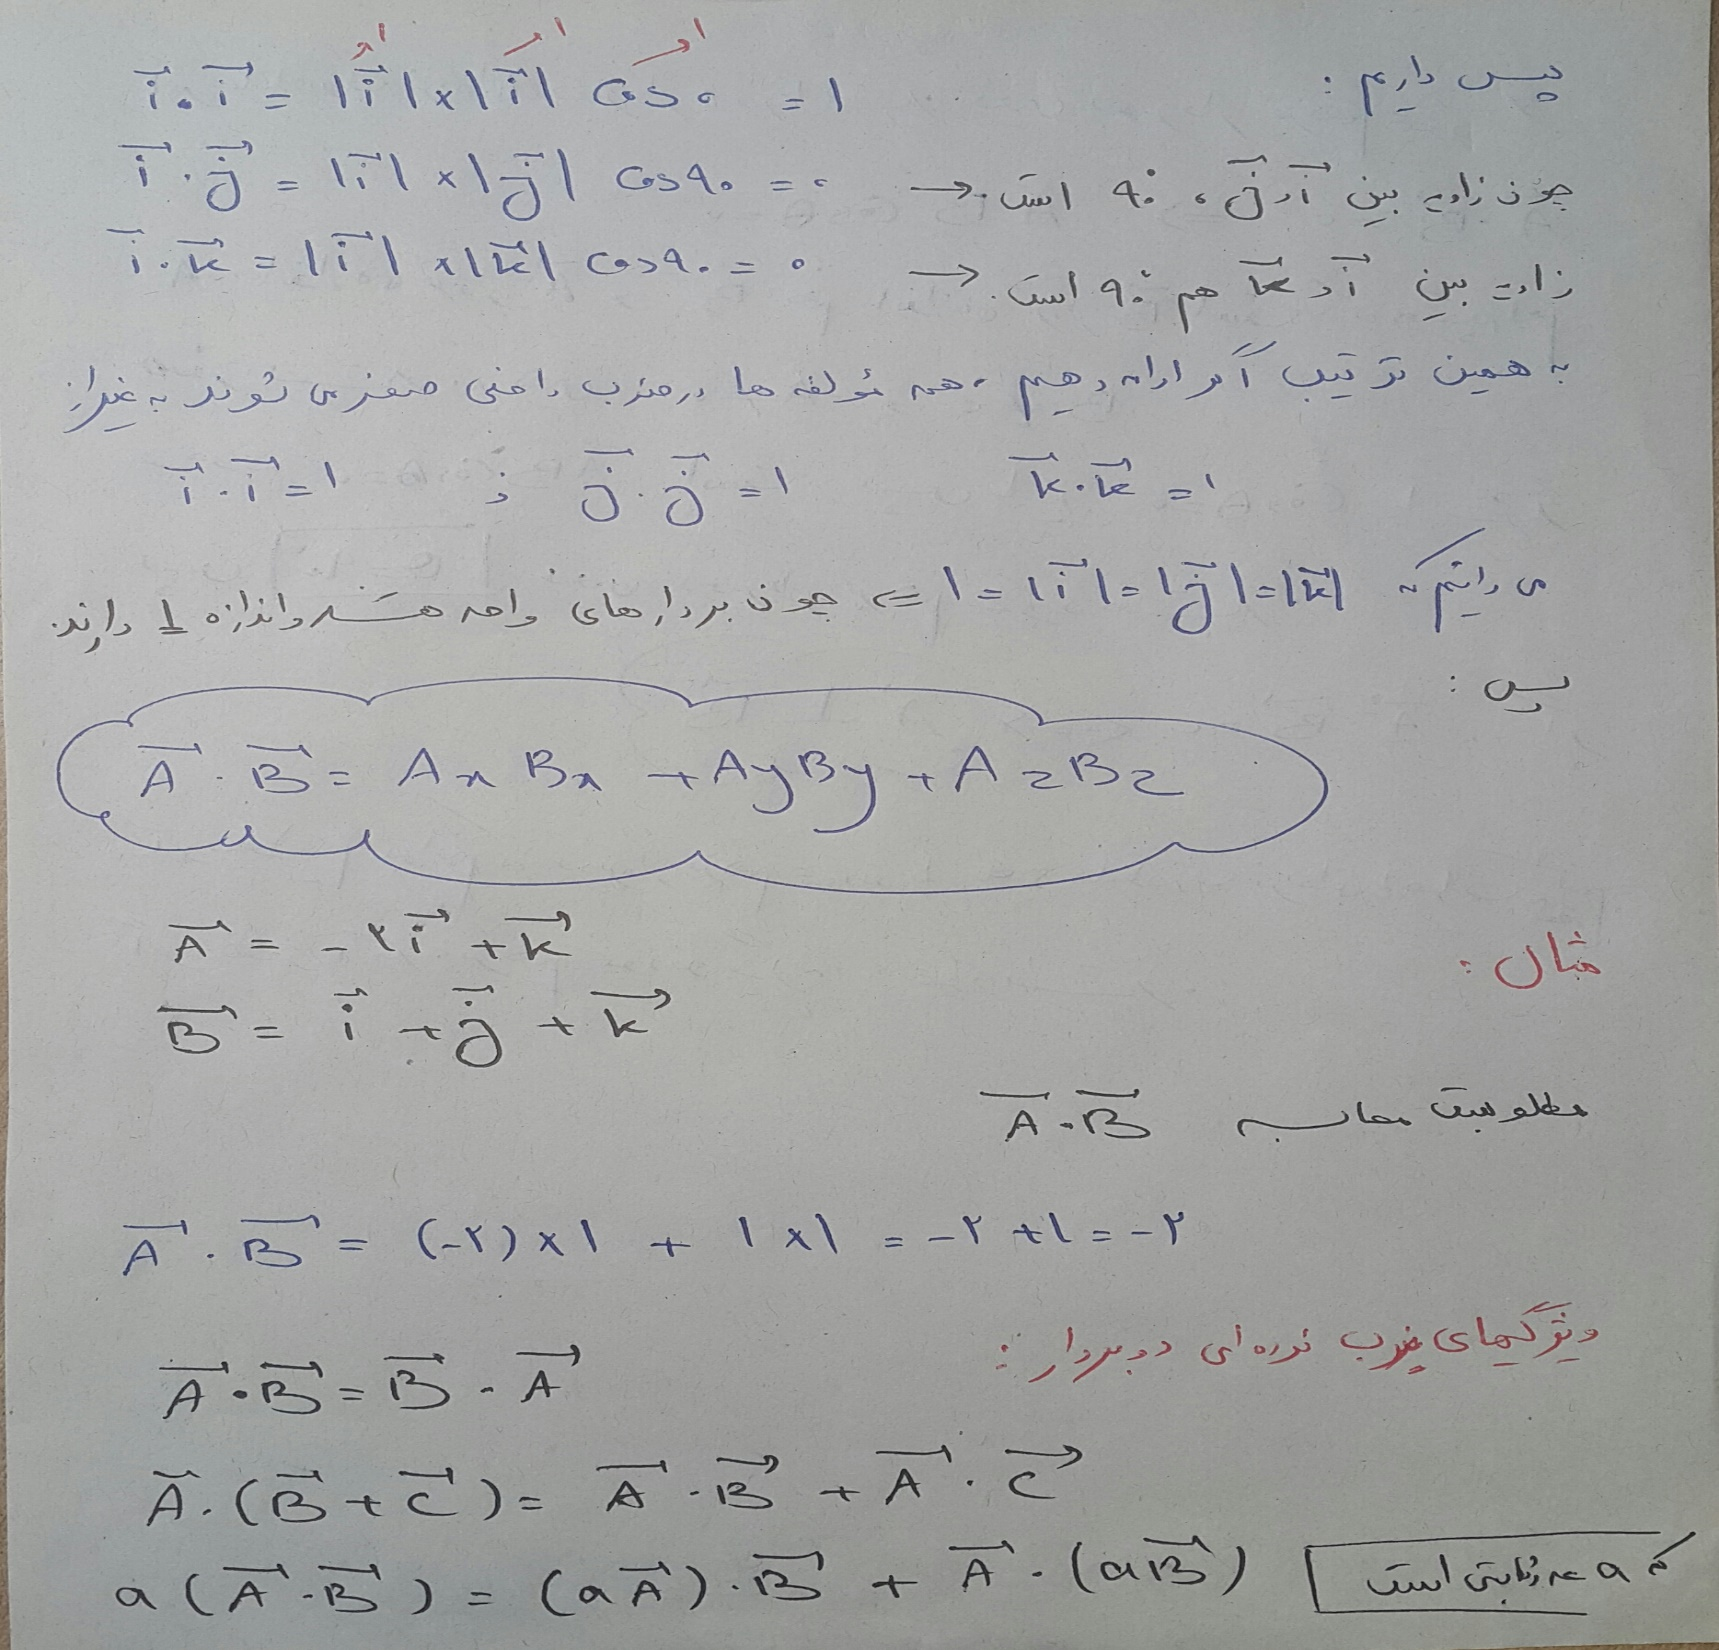 پس داریم :
i⃗ . i⃗ = |i⃗| × |i⃗| Cos ۰ = ۱
i⃗ . j⃗ = |i⃗| × |j⃗| Cos ۹۰ = ۰ → چون زاویه بین i⃗ و j⃗ ، ۹۰° است.
i⃗ . k⃗ = |i⃗| × |k⃗| Cos ۹۰ = ۰ → زاویه بین i⃗ و k⃗ هم ۹۰° است.
به همین ترتیب اگر ادامه دهیم ، همه مؤلفه ها در ضرب داخلی صفر می شوند به غیر از
i⃗ . i⃗ = ۱ ; j⃗ . j⃗ = ۱ k⃗ . k⃗ = ۱
می دانیم که ۱ = |i⃗| = |j⃗| = |k⃗| ⇐ چون بردارهای واحد هستند و اندازه 1 دارند
پس :
A⃗ . B⃗ = Ax Bx + Ay By + Az Bz
مثال :
A⃗ = -۲i⃗ + k⃗
B⃗ = i⃗ + j⃗ + k⃗
مطلوبست محاسبه A⃗ . B⃗
A⃗ . B⃗ = (-۲) × ۱ + ۱ × ۱ = -۲ + ۱ = -۲
ویژگیهای ضرب نرده ای دو بردار :
A⃗ . B⃗ = B⃗ . A⃗
A⃗ . (B⃗ + C⃗) = A⃗ . B⃗ + A⃗ . C⃗
a (A⃗ . B⃗) = (a A⃗) . B⃗ + A⃗ . (a B⃗) که a عدد ثابتی است